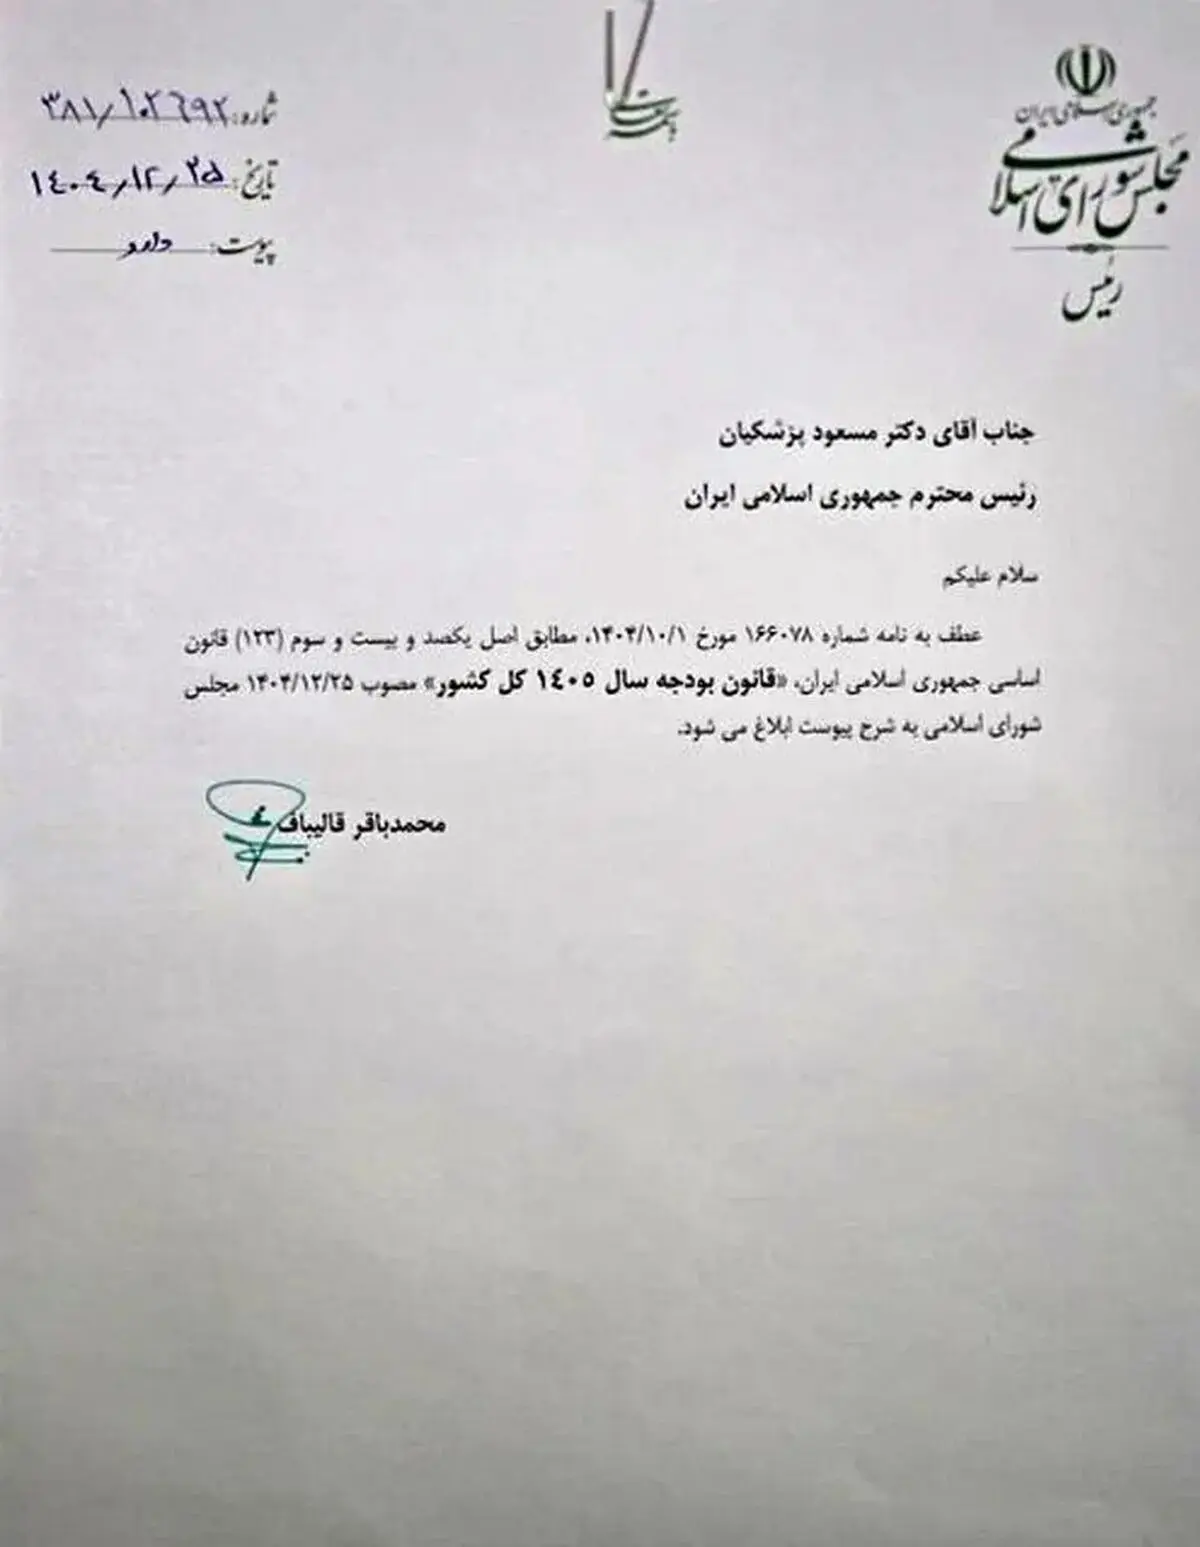 باسمه تعالی
جمهوری اسلامی ایران
مجلس شورای اسلامی
رئیس
شماره: ۳۸۱/۱۰۲۶۹۲
تاریخ: ۱۴۰۴/۱۲/۲۵
پیوست: دارد
جناب آقای دکتر مسعود پزشکیان
رئیس محترم جمهوری اسلامی ایران
سلام علیکم
عطف به نامه شماره ۱۶۶۰۷۸ مورخ ۱۴۰۴/۱۰/۱، مطابق اصل یکصد و بیست و سوم (۱۲۳) قانون
اساسی جمهوری اسلامی ایران، «قانون بودجه سال ۱۴۰۵ کل کشور» مصوب ۱۴۰۴/۱۲/۲۵ مجلس
شورای اسلامی به شرح پیوست ابلاغ می شود.
محمدباقر قالیباف